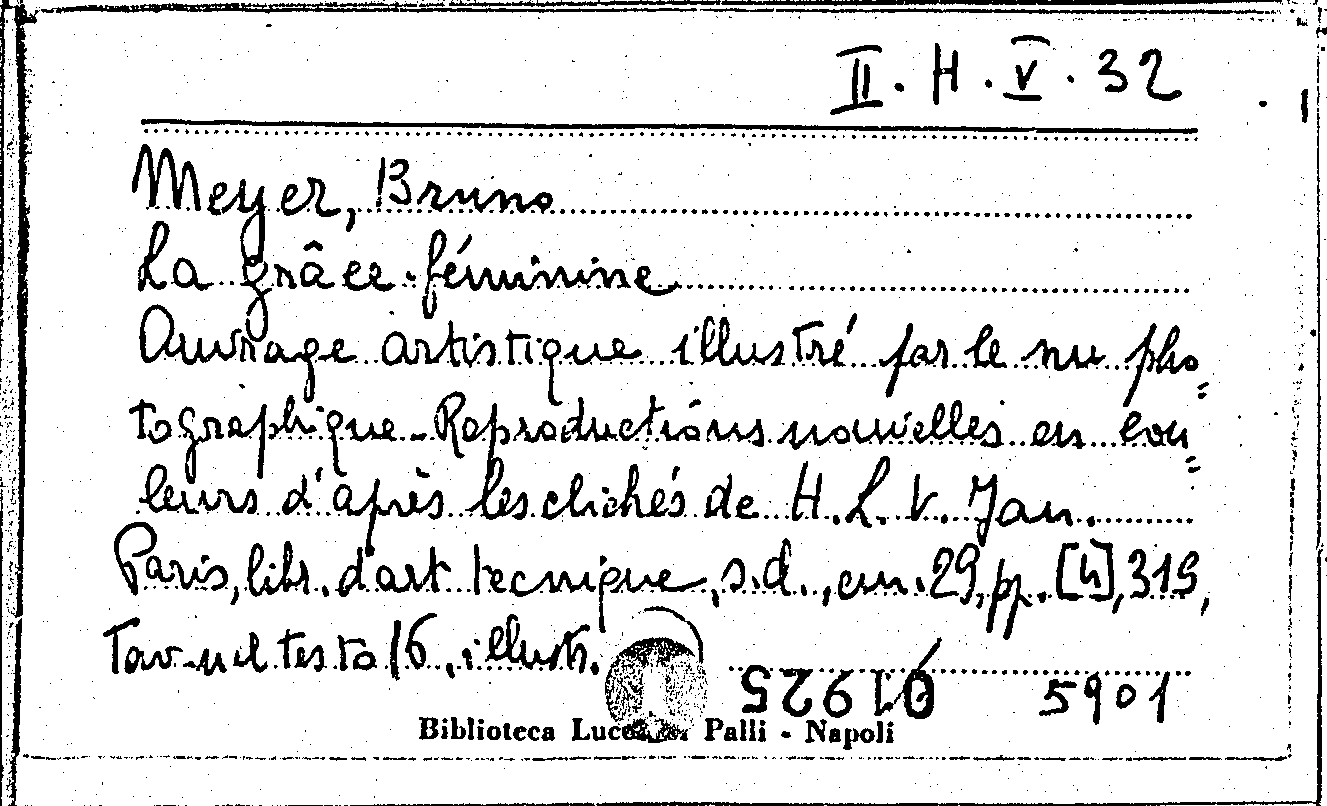 II. H. V. 32
Meyer, Bruno
La grâce féminine
Ouvrage artistique illustré par le nu pho=
tographique - Reproductions nouvelles en cou=
leurs d'après les clichés de H. L. V. Jan.
Paris, libr. d'art tecnique, s.d., cm. 29, pp. [4], 319,
Tav. nel testo 16, illustr.
01925 5901
Biblioteca Palli - Napoli